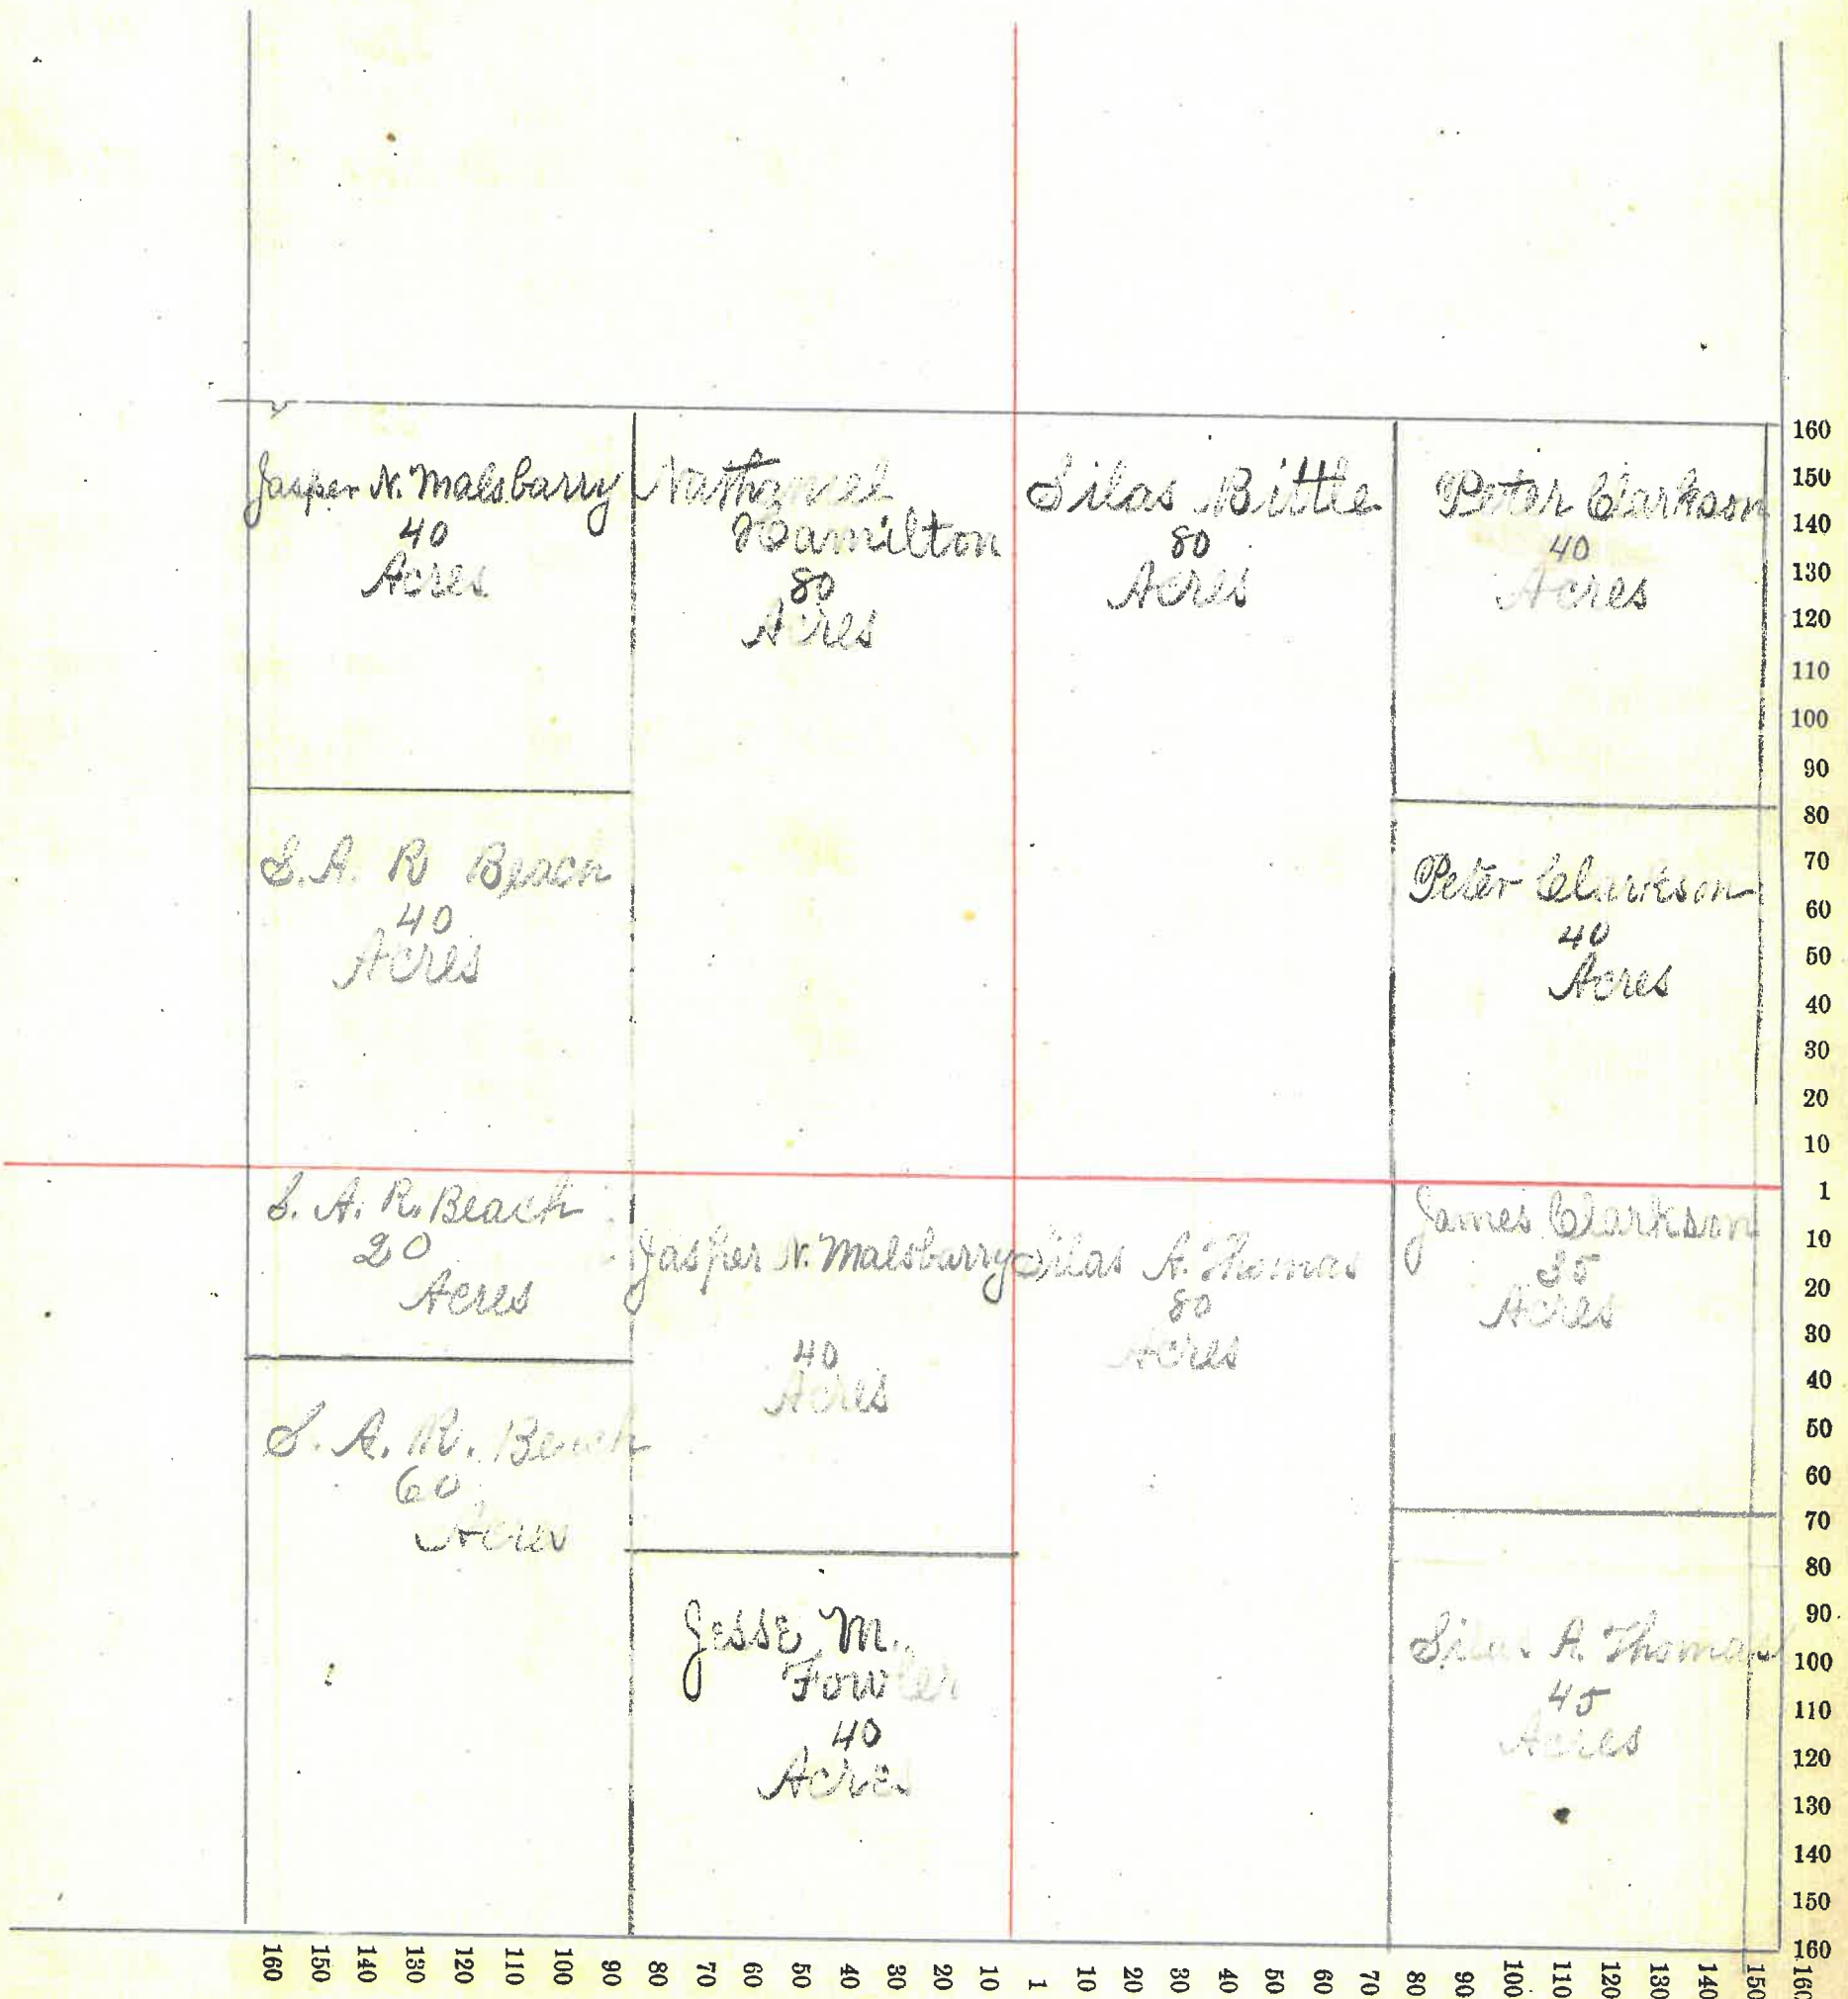 Jasper N. Malsbarry
40
Acres
Nathaniel
Hamilton
80
Acres
Silas Bittle
80
Acres
Peter Clarkson
40
Acres
S. A. R Beach
40
Acres
Peter Clarkson
40
Acres
S. A. R. Beach
20
Acres
Jasper N. Malsbarry
40
Acres
Silas A. Thomas
80
Acres
James Clarkson
35
Acres
S. A. R. Beach
60
Acres
Jesse M.
Fowler
40
Acres
Silas A. Thomas
45
Acres
160
150
140
130
120
110
100
90
80
70
60
50
40
30
20
10
1
10
20
30
40
50
60
70
80
90
100
110
120
130
140
150
160
160 150 140 130 120 110 100 90 80 70 60 50 40 30 20 10 1 10 20 30 40 50 60 70 80 90 100 110 120 130 140 150 160